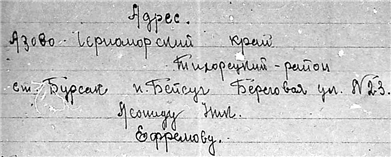 Адрес.
Азово-Черноморский край
Тихорецкий-район
ст. Бурсак п. Бейсуг Береговая ул. №23.
Леониду Ник.
Ефремову.